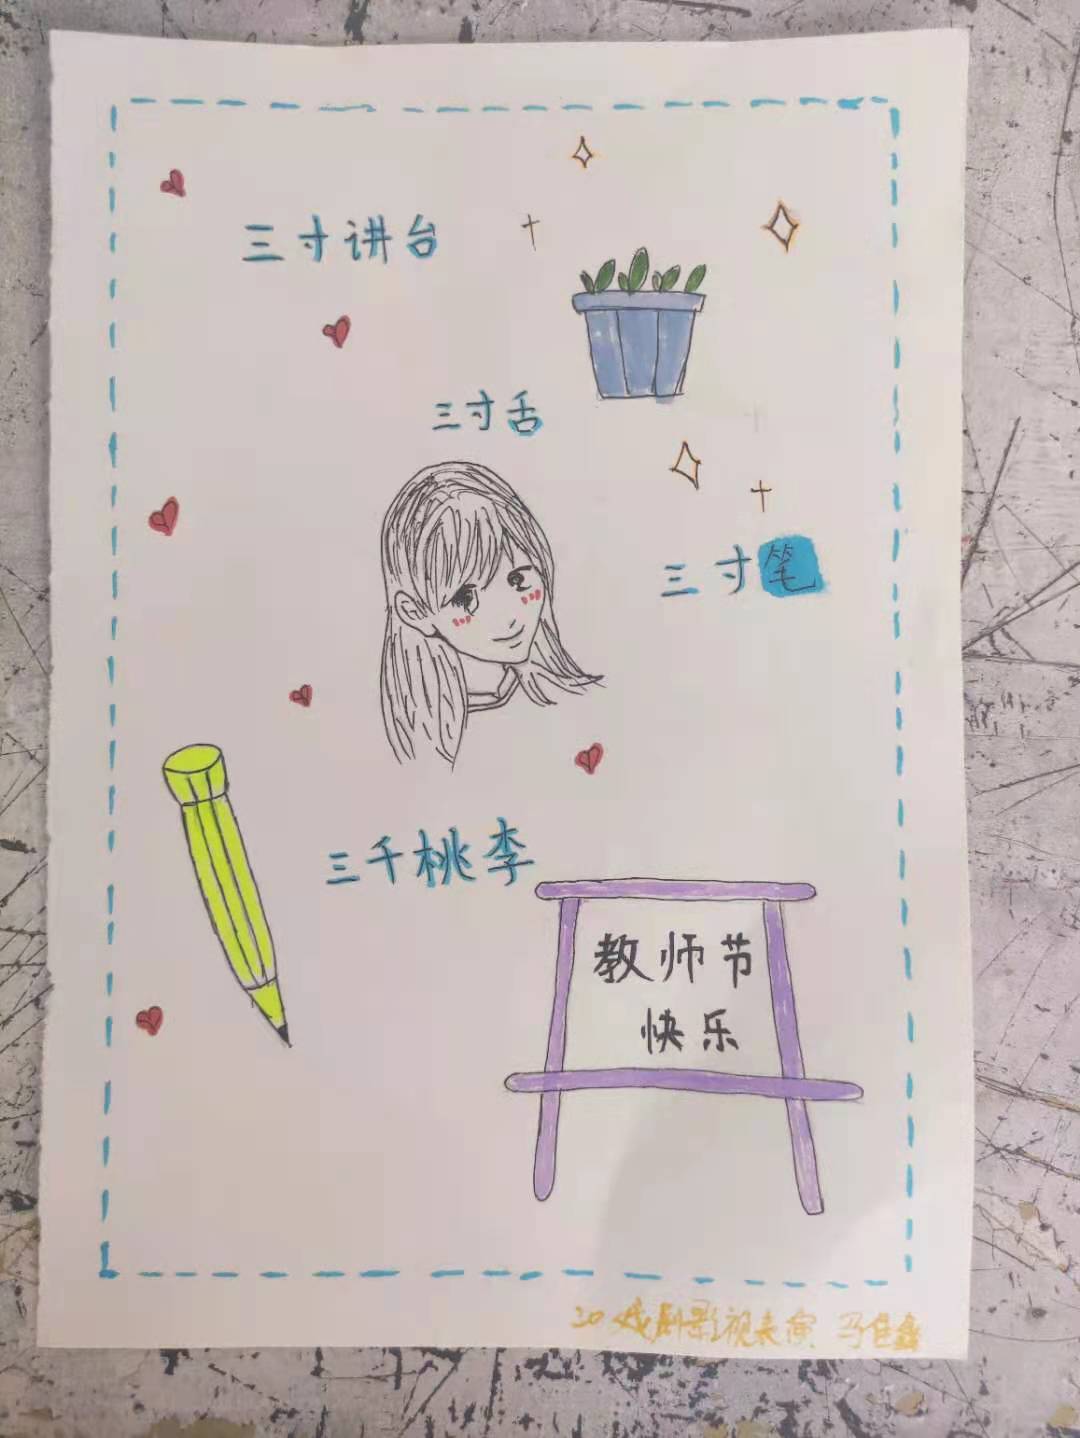 三寸讲台
三寸舌
三寸笔
三千桃李
教师节
快乐
20戏剧影视表演 马佳鑫